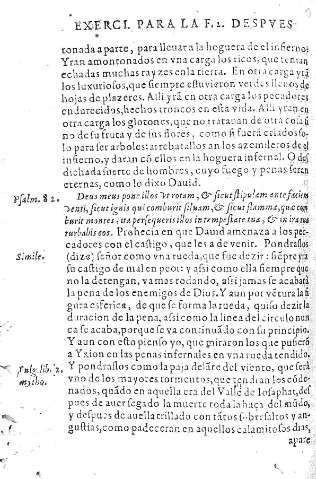 EXERCI. PARA LA F. 2. DESPVES
tonada a parte, para lleuar a la hoguera de el infierno.
Yran amontonados en vna carga los ricos, que tenian
echadas muchas rayzes en la tierra. En otra carga yrã
los luxuriosos, que siempre estuuieron verdes llenos de
hojas de plazeres. Alli yrã en otra carga los peccadores
endurecidos, hechos troncos en esta vida. Alli yran en
otra carga los glotones, que no tratauan de otra cosa si
no de su fruta y de sus flores, como si fuerã criados so-
lo para ser arboles: arrebatallos an los azemileros de el
infierno, y daran cõ ellos en la hoguera infernal. O des
dichada suerte de hombres, cuyo fuego y penas seran
eternas, como lo dixo Dauid.
Psalm. 82.
Deus meus pone illos vt rotam, & sicut stipulam ante faciem
venti, sicut ignis qui comburit siluam, & sicut flamma, que com
burit montes, ita persequeris illos in tempestate tua, & in ira tua
turbabis eos. Prophecia en que Dauid amenaza a los pec
cadores con el castigo, que les a de venir. Pondraslos
Simile.
(dize) señor como vna rueda, que fue dezir: siẽpre yra
su castigo de mal en peor: y assi como ella siempre que
no la detengan, va mas rodando, assi jamas se acabara
la pena de los enemigos de Dios. Y aun por vẽtura la fi
gura esferica, de que se forma la rueda, quiso dezir la
duracion de la pena, assi como la linea del circulo nun
ca se acaba, porque se va continuãdo con su principio.
Y aun con esto pienso yo, que miraron los que pusierõ
a Yxion en las penas infernales en vna rueda tendido.
lib. 2.
mytho.
Y pondraslos como la paja delãte del viento, que sera
vno de los mayores tormentos, que tendran los cõde-
nados, quãdo en aquella era del Valle de Iosaphat, des
pues de auer segado la muerte toda la haça del mũdo,
y despues de auella trillado con tãtos sobresaltos y an-
gustias, como padeceran en aquellos calamitosos dias,
apare